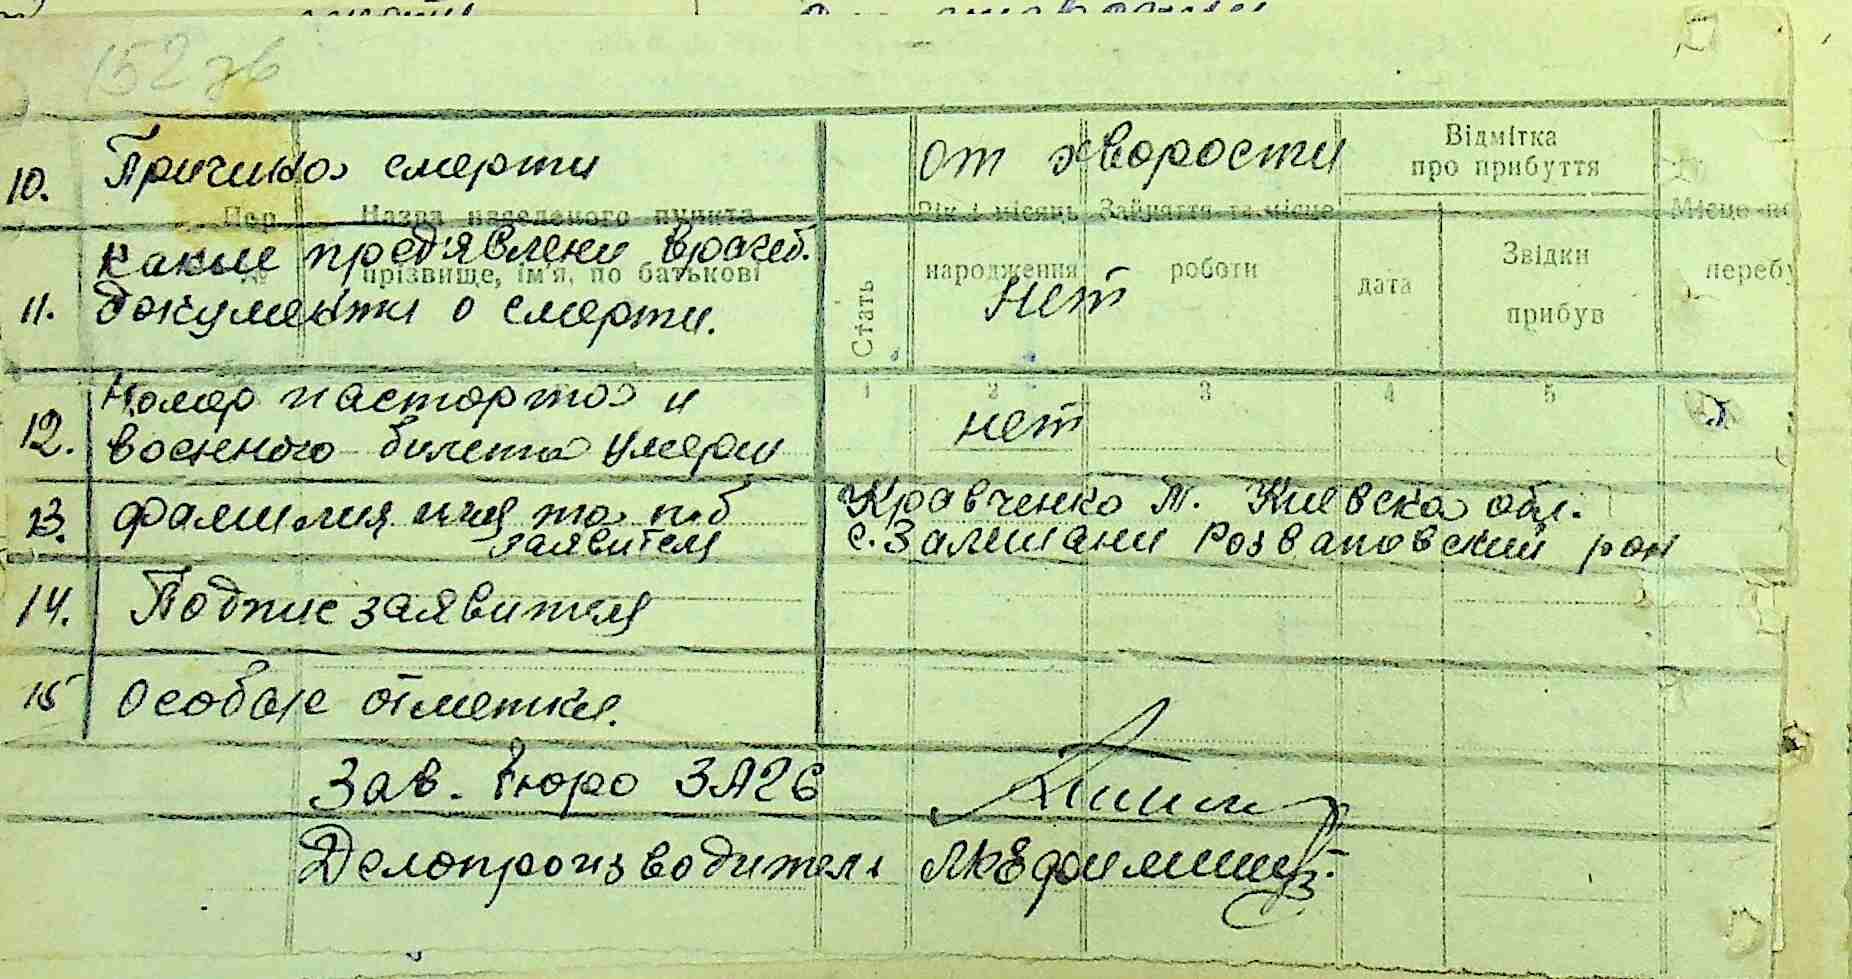 152 зв
10. Причина смерти от хворости
Відмітка
про прибуття
Назва населеного пункта
Рік і місяць Зайняття та місце
какие предявлени врачеб.
№ прізвище, ім'я, по батькові
народження роботи
Стать
дата
Звідки
прибув
11. документи о смерти. нет
1 2 3 4 5
Номер паспорта и
12. военного билета умерши нет
13. фамилия имя та п.б Кравченко Т. Киевска обл.
заявителя с. Залишани Розваповский рон
14. Подпис заявителя
15 особые отметки.
Зав. бюро ЗАГС
Делопроизводитель